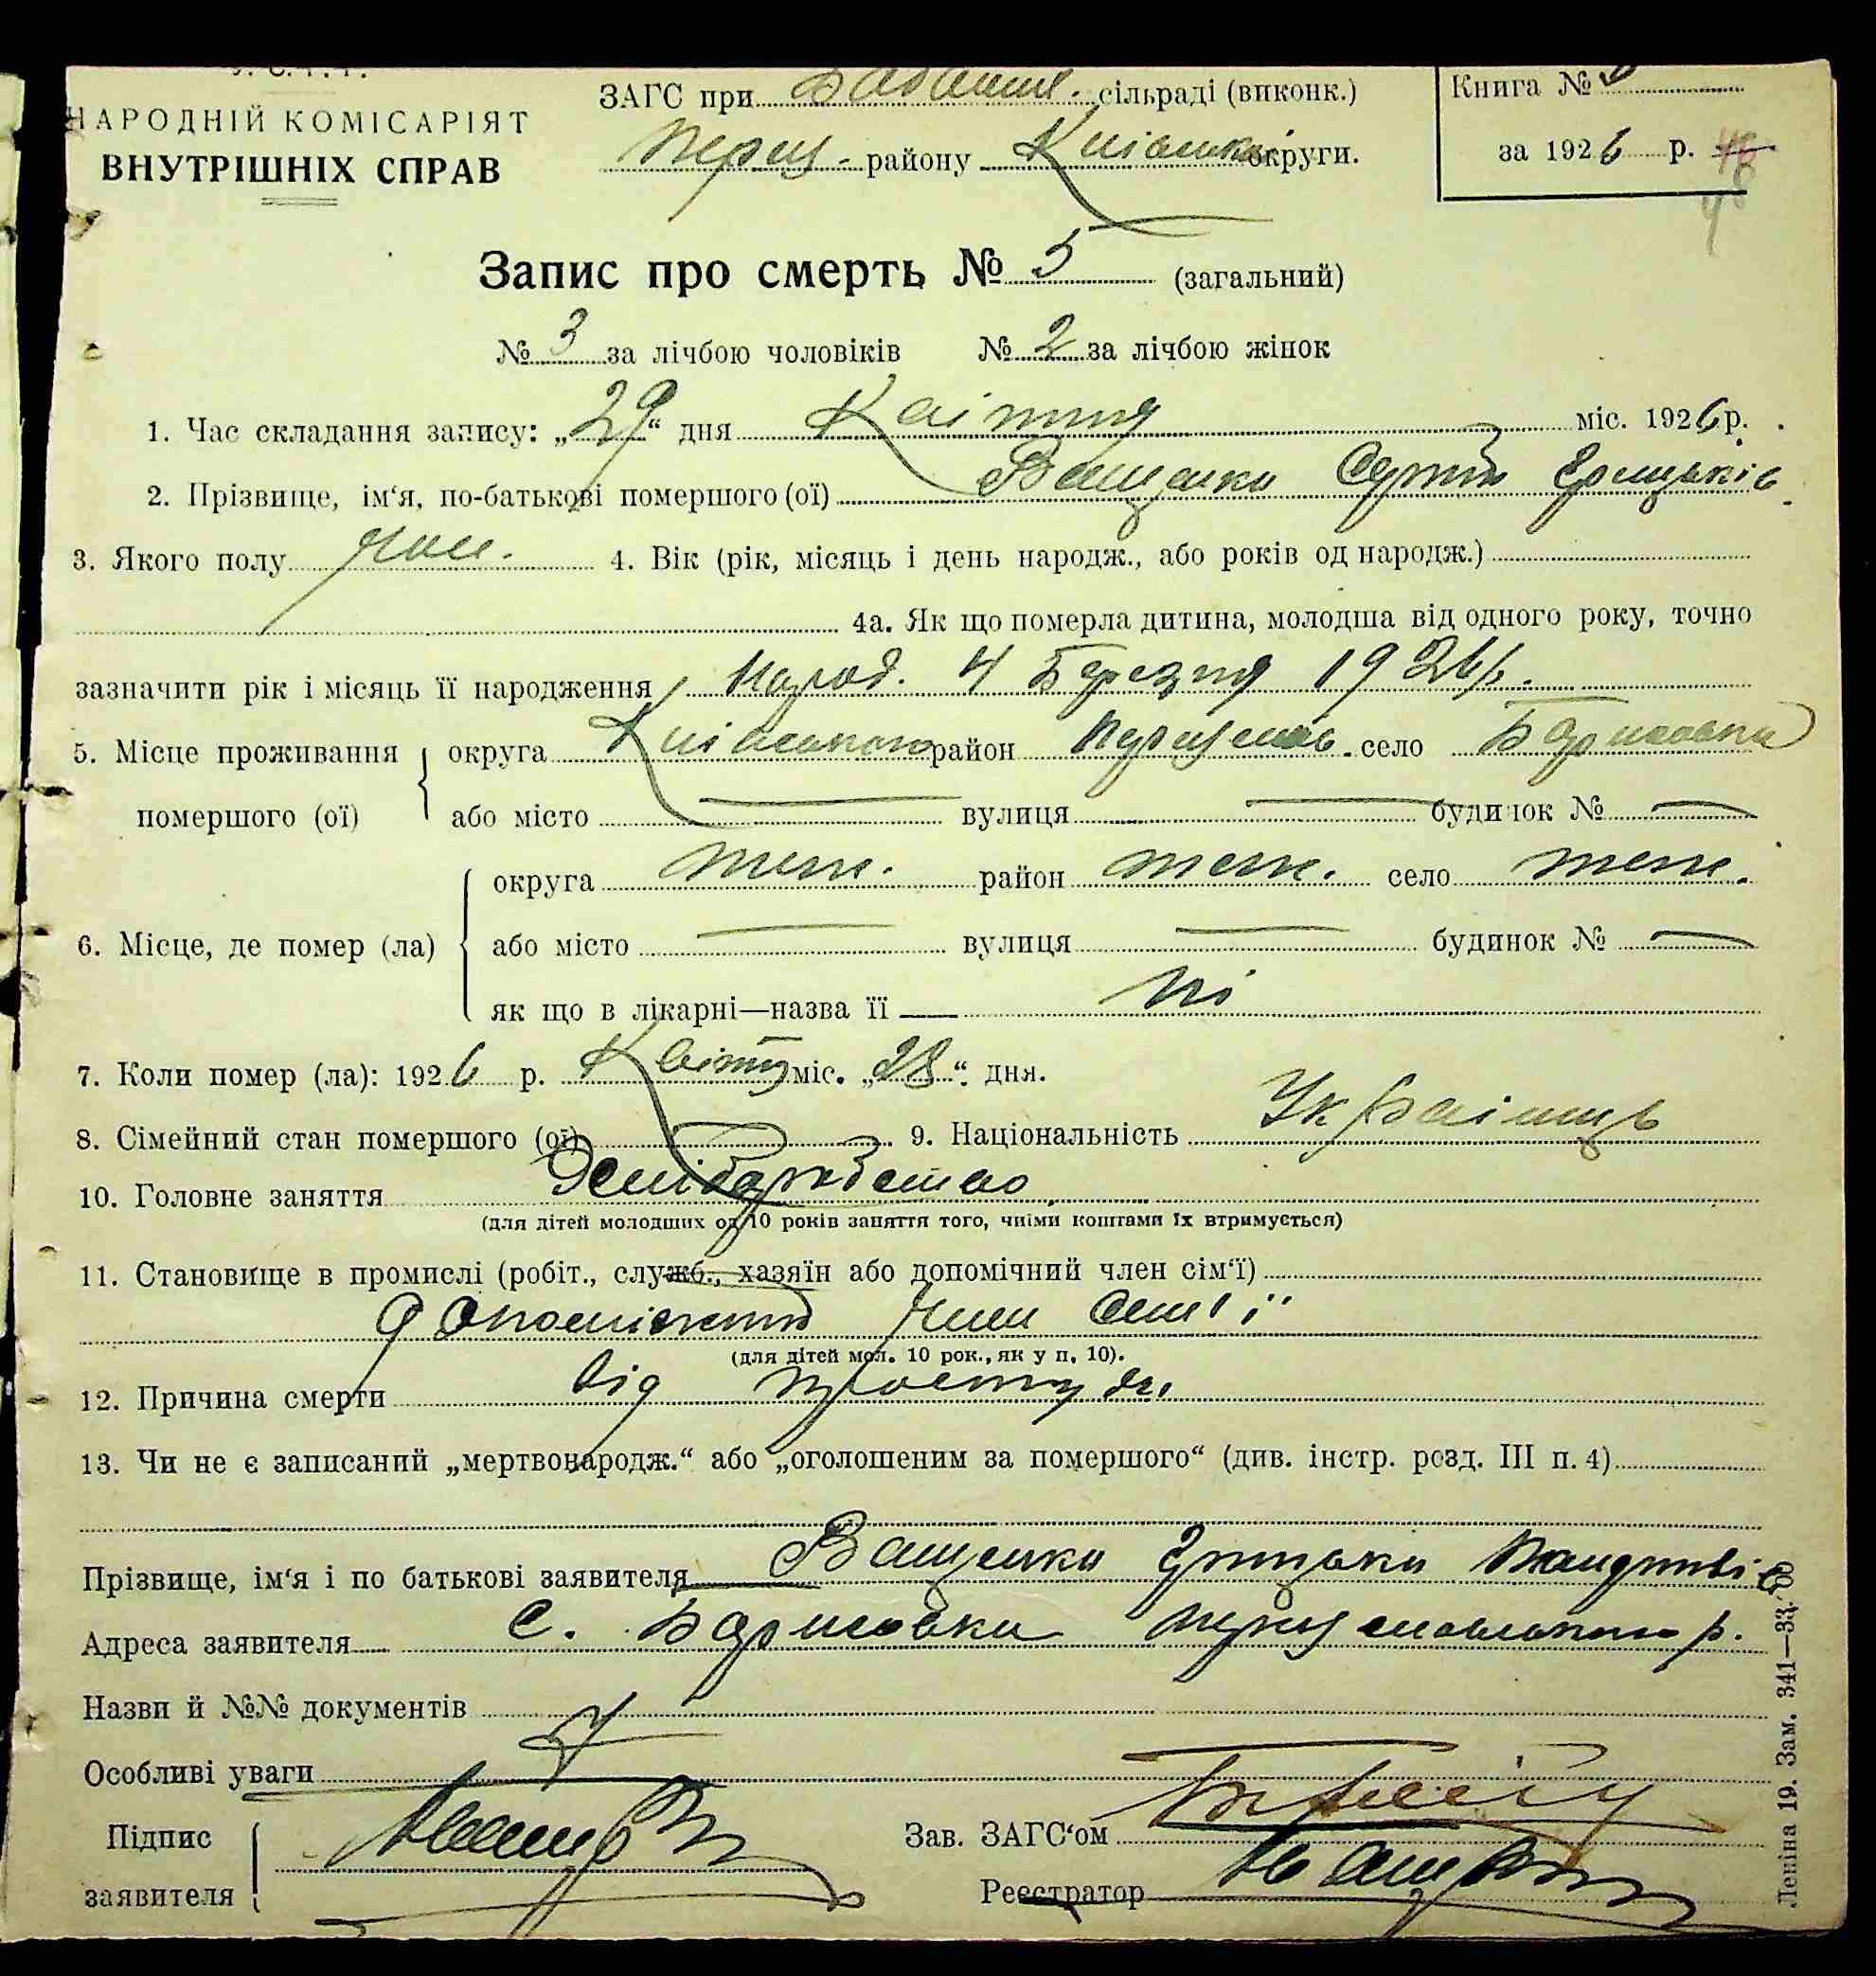 НАРОДНІЙ КОМІСАРІЯТ
ВНУТРІШНІХ СПРАВ
ЗАГС при сільраді (виконк.)
Переу- району Київськ округи.
Книга №
за 1926 р. 48
Запис про смерть № 5 (загальний)
№ 3 за лічбою чоловіків № 2 за лічбою жінок
1. Час складання запису: „29“ дня Квітня міс. 1926 р.
2. Прізвище, ім‘я, по-батькові помершого (ої) Ващенко Сергій Грицьків
3. Якого полу чол. 4. Вік (рік, місяць і день народж., або років од народж.)
4а. Як що померла дитина, молодша від одного року, точно
зазначити рік і місяць її народження Народ. 4 Березня 1926 р.
5. Місце проживання помершого (ої) округа Київського район село
або місто — вулиця — будинок № —
6. Місце, де помер (ла) округа теж. район теж. село теж.
або місто — вулиця — будинок № —
як що в лікарні—назва її — ні
7. Коли помер (ла): 1926 р. Квітня міс. „28“ дня.
8. Сімейний стан помершого (ої) 9. Національність Українць
10. Головне заняття
(для дітей молодших од 10 років заняття того, чиїми коштами їх втримується)
11. Становище в промислі (робіт., служб., хазяїн або допомічний член сім‘ї)
допомічний член сем'ї
(для дітей мол. 10 рок., як у п. 10).
12. Причина смерти від простуди
13. Чи не є записаний „мертвонародж.“ або „оголошеним за помершого“ (див. інстр. розд. III п. 4)
Прізвище, ім‘я і по батькові заявителя Ващенко Грицько
Адреса заявителя с. р.
Назви й №№ документів
Особливі уваги
Підпис заявителя
Зав. ЗАГС‘ом
Реєстратор
Леніна 19. Зам. 341—33.